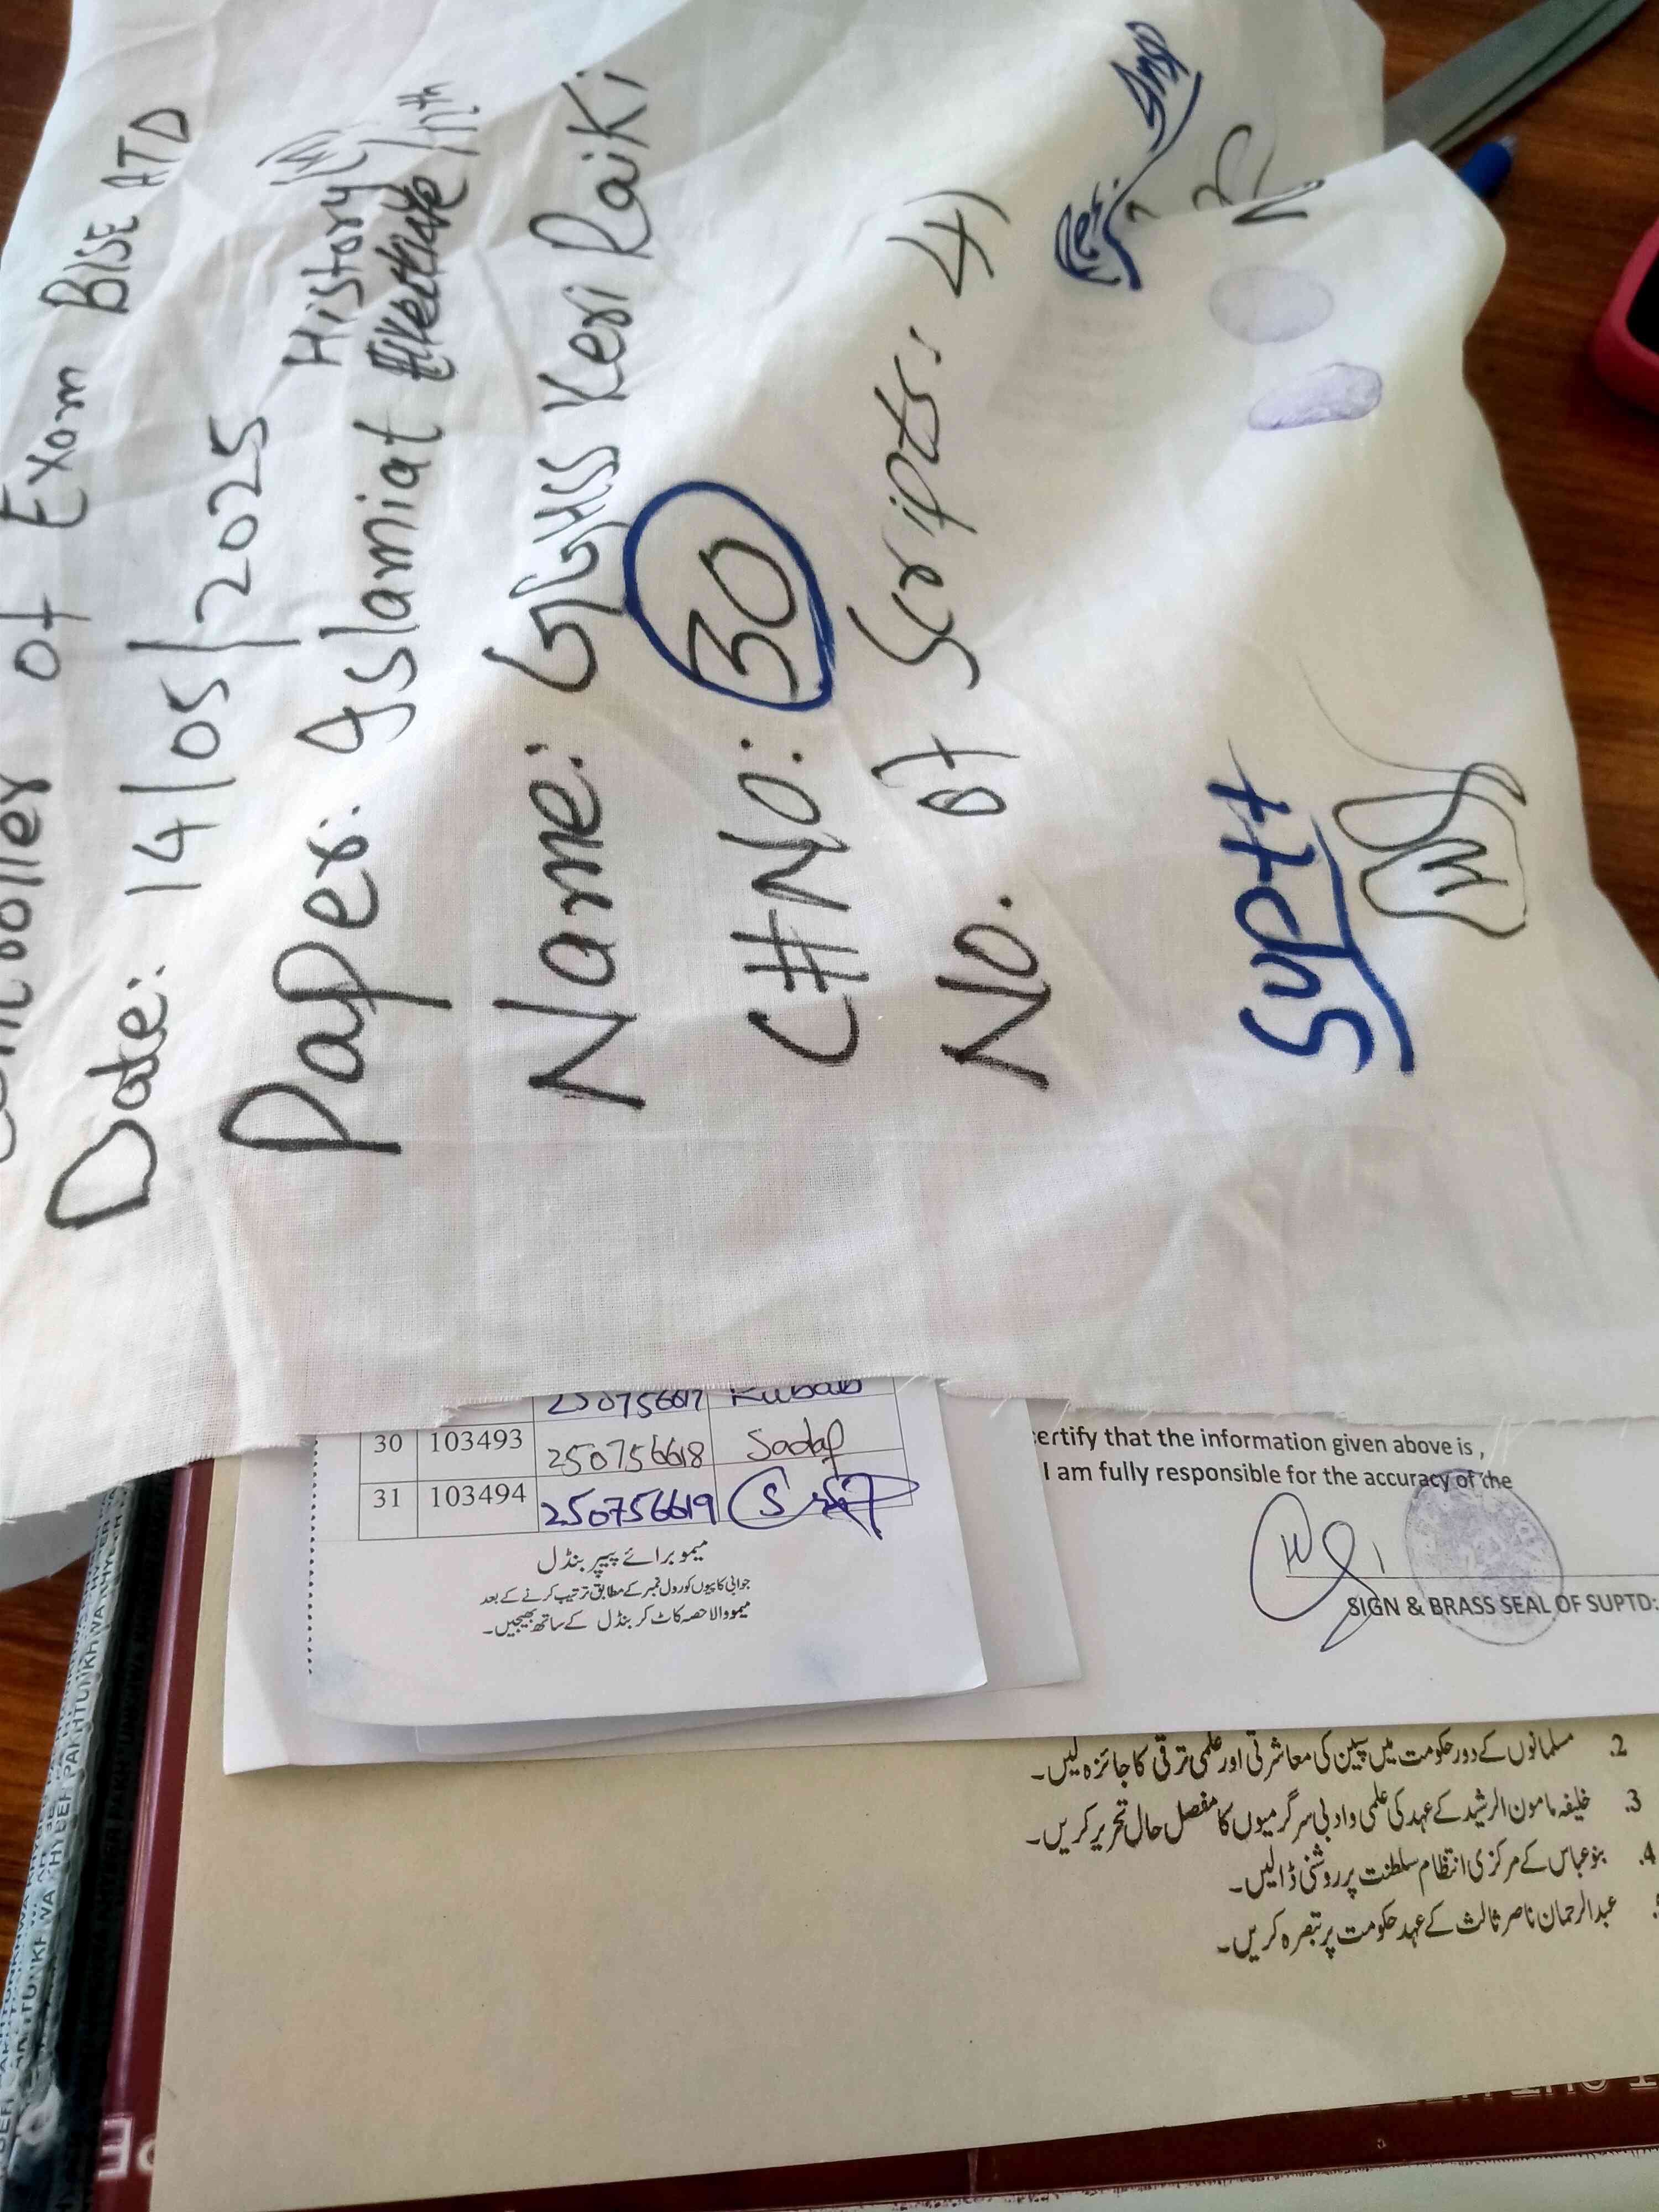 Controller of Exam BISE ATD
Date: 14/05/2025
History
Paper: Islamiat 11th
Name: GGHSS Keri Raiki
C#No: 30
No. of Scripts: 41
Supdt
250756617 Rubab
30 103493 250756618 Sadaf
31 103494 250756619
میمو برائے پیپر بنڈل
جوابی کاپیوں کو رول نمبر کے مطابق ترتیب کرنے کے بعد
میمو والا حصہ کاٹ کر بنڈل کے ساتھ بھیجیں۔
certify that the information given above is ,
I am fully responsible for the accuracy of the
SIGN & BRASS SEAL OF SUPTD:
2. مسلمانوں کے دور حکومت میں سپین کی معاشرتی اور علمی ترقی کا جائزہ لیں۔
3. خلیفہ مامون الرشید کے عہد کی علمی و ادبی سرگرمیوں کا مفصل حال تحریر کریں۔
4. بنو عباس کے مرکزی انتظام سلطنت پر روشنی ڈالیں۔
عبدالرحمان ناصر ثالث کے عہد حکومت پر تبصرہ کریں۔
KHYBER PAKHTUNKHWA